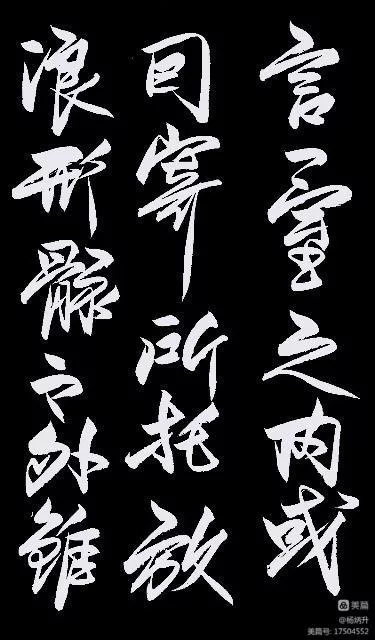 言一室之内或
因寄所托放
浪形骸之外雖
美篇
@杨炳升
美篇号: 17504552